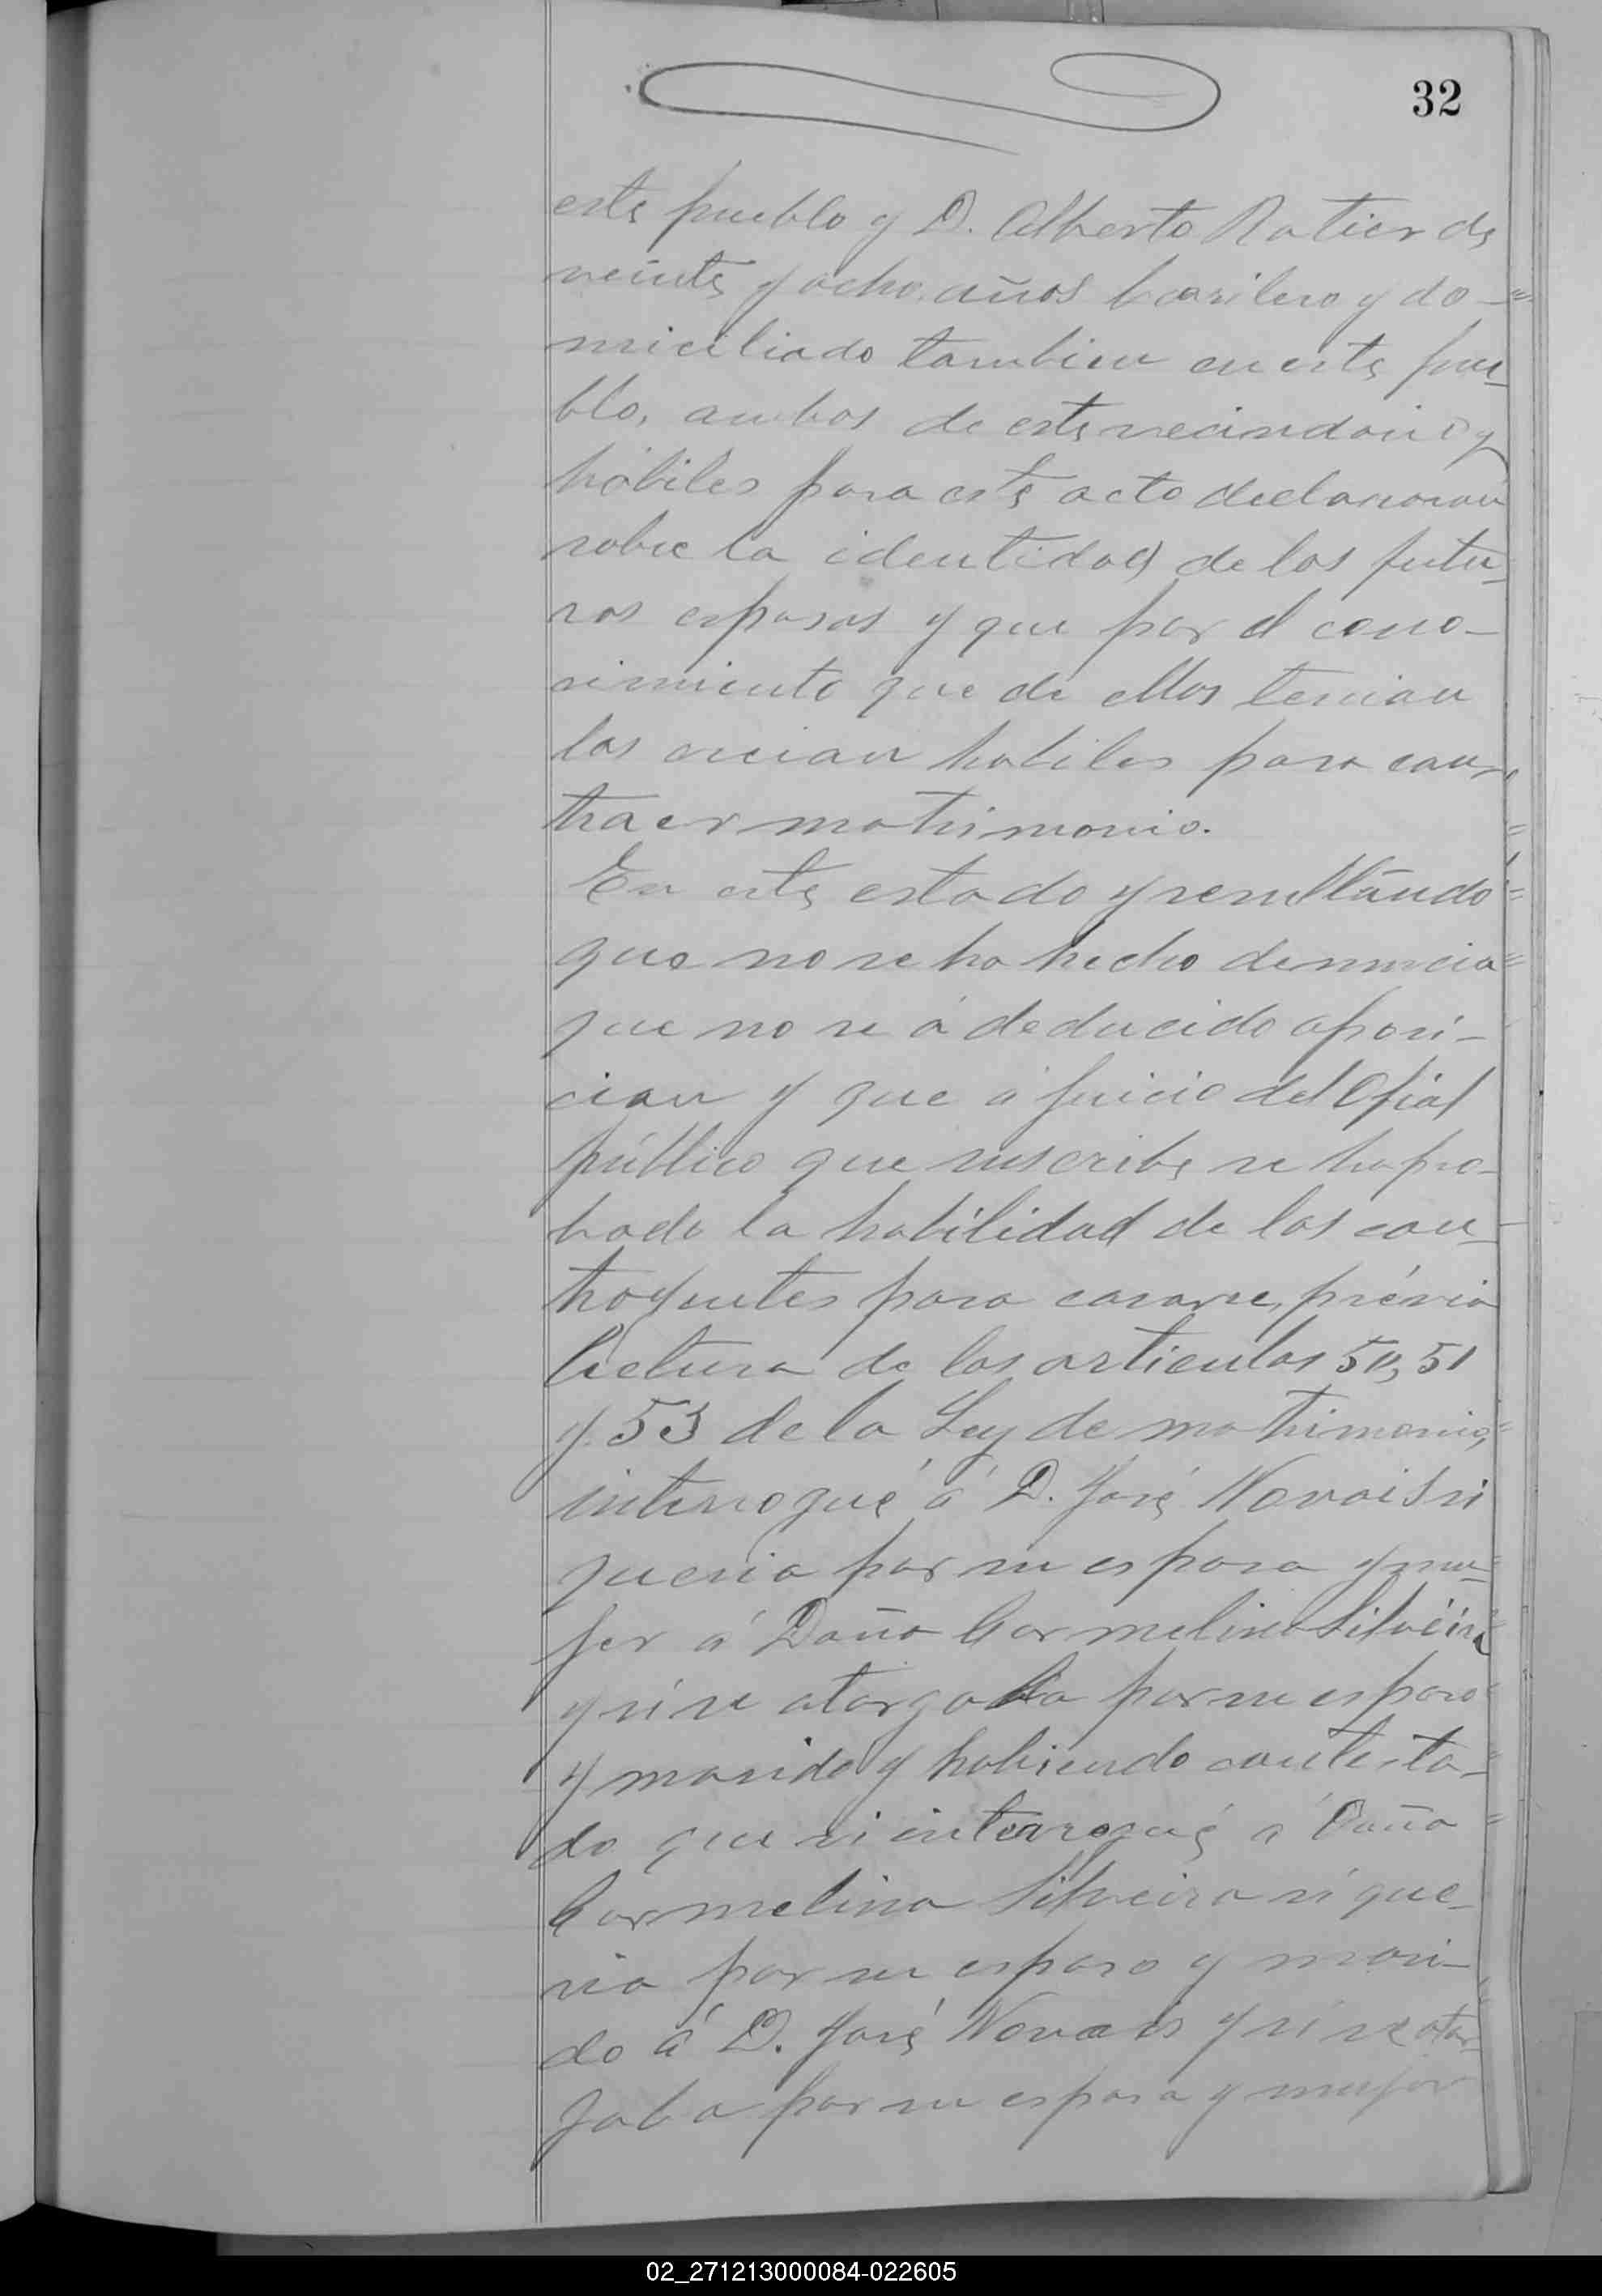 32
este pueblo y D. Alberto Ratier de
veinte y ocho años basilero y do-
miciliado tambien en este pue-
blo, ambos de este vecindario y
hábiles para este acto declararon
sobre la identidad de los futu-
ros esposos y que por el cono-
simiento que de ellos tenian
los creian habiles para con-
traer matrimonio.
En este estado y resultando
que no se ha hecho denuncia
que no se á deducido oposi-
cion y que á juicio del Ofial
público que suscribe se ha pro-
bado la habilidad de los con-
trayentes para casarse, prévia
lectura de los articulos 50, 51
y 53 de la Ley de matrimonio,
interrogué á D. José Novais si
queria por su esposa y mu-
jer á Doña Carmelina Silveira
y si se otorgaba por su esposo
y marido y habiendo contesta-
do que si interrogué á Doña
Carmelina Silveira si que-
ria por su esposo y mari-
do á D. José Novais y si se otor-
gaba por su esposa y mujer
02_271213000084-022605